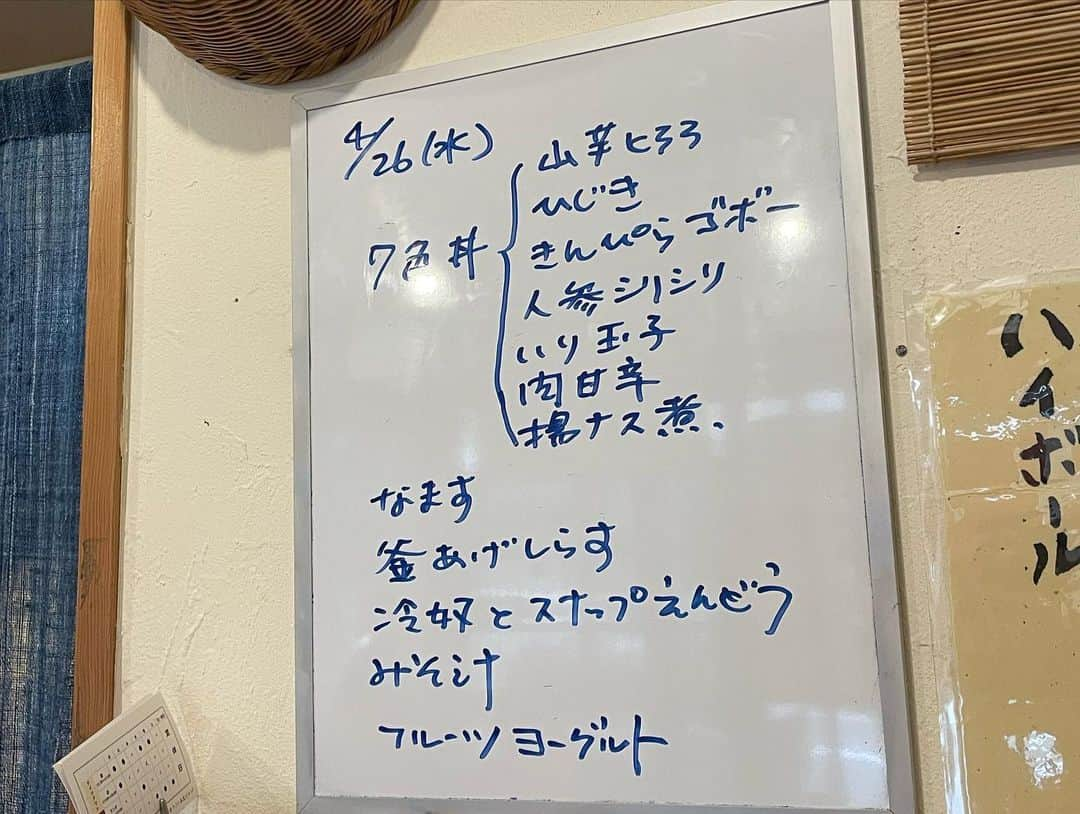 4/26(水)
7色丼
山芋とろろ
ひじき
きんぴらゴボー
人参シリシリ
いり玉子
肉甘辛
揚ナス煮.
なます
釜あげしらす
冷奴とスナップえんどう
みそ汁
フルーツヨーグルト
ハイボール